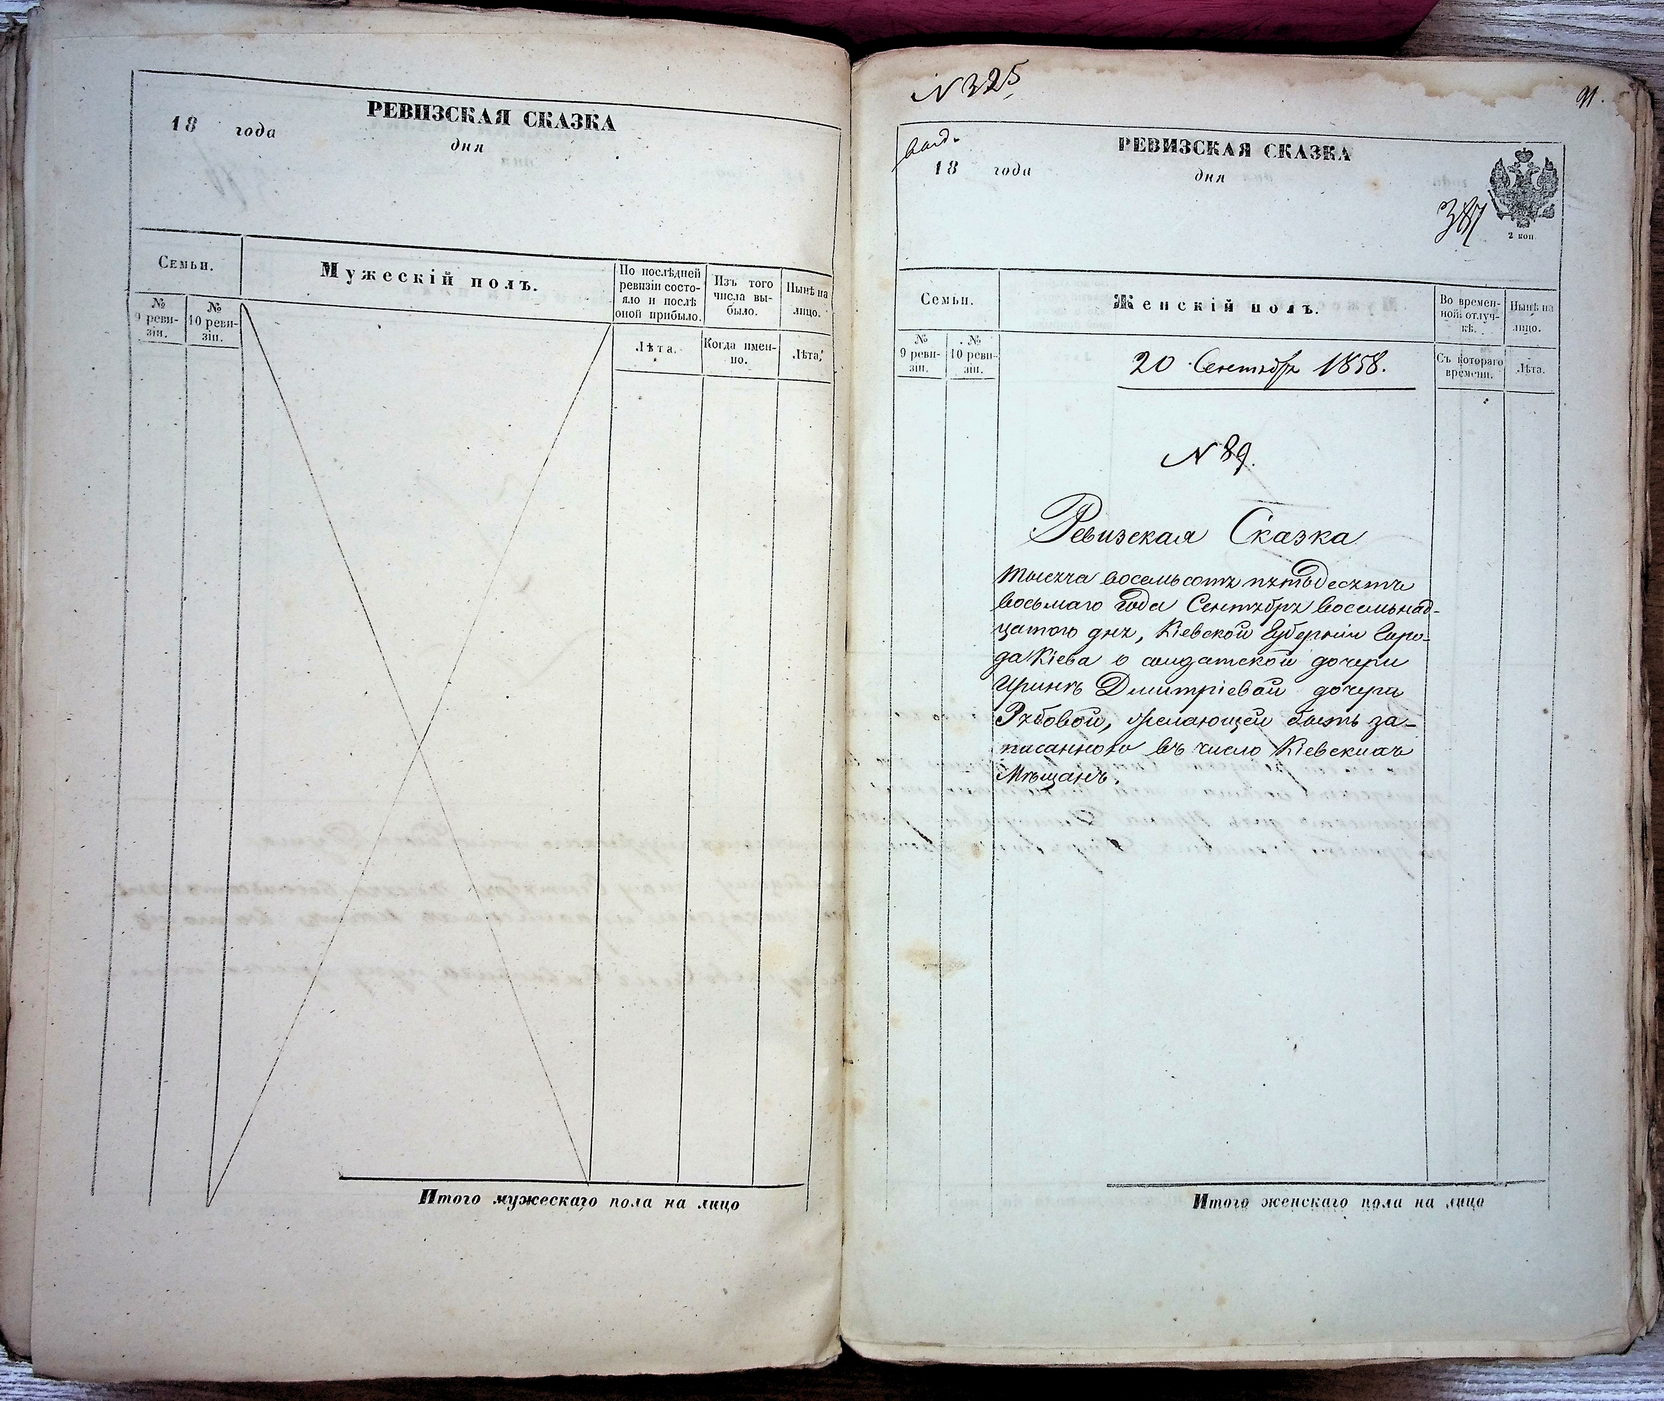 РЕВИЗСКАЯ СКАЗКА
18 года
дня
Семьи.
Мужескій полъ.
По послѣдней
ревизіи состо-
яло и послѣ
оной прибыло.
Изъ того
числа вы-
было.
Нынѣ на
лицо.
№
9 реви-
зіи.
№
10 реви-
зіи.
Лѣта.
Когда имен-
но.
Лѣта.
Итого мужескаго пола на лицо
N 325
91.
РЕВИЗСКАЯ СКАЗКА
18 года
дня
387
2 коп
Семьи.
Женскій полъ.
Во времен-
ной отлуч-
кѣ.
Нынѣ на
лицо.
№
9 реви-
зіи.
№
10 реви-
зіи.
Съ котораго
времени.
Лѣта.
20 Сентября 1858.
N 89.
Ревизская Сказка
тысяча восемьсотъ пятьдесятъ
восьмаго года Сентября восемьнад-
цатого дня, Кіевской Губерніи Горо-
да Кіева о солдатской дочери
Иринѣ Дмитріевой дочери
Рябовой, желающей быть за-
писанною въ число Кіевскихъ
Мѣщанъ.
Итого женскаго пола на лицо